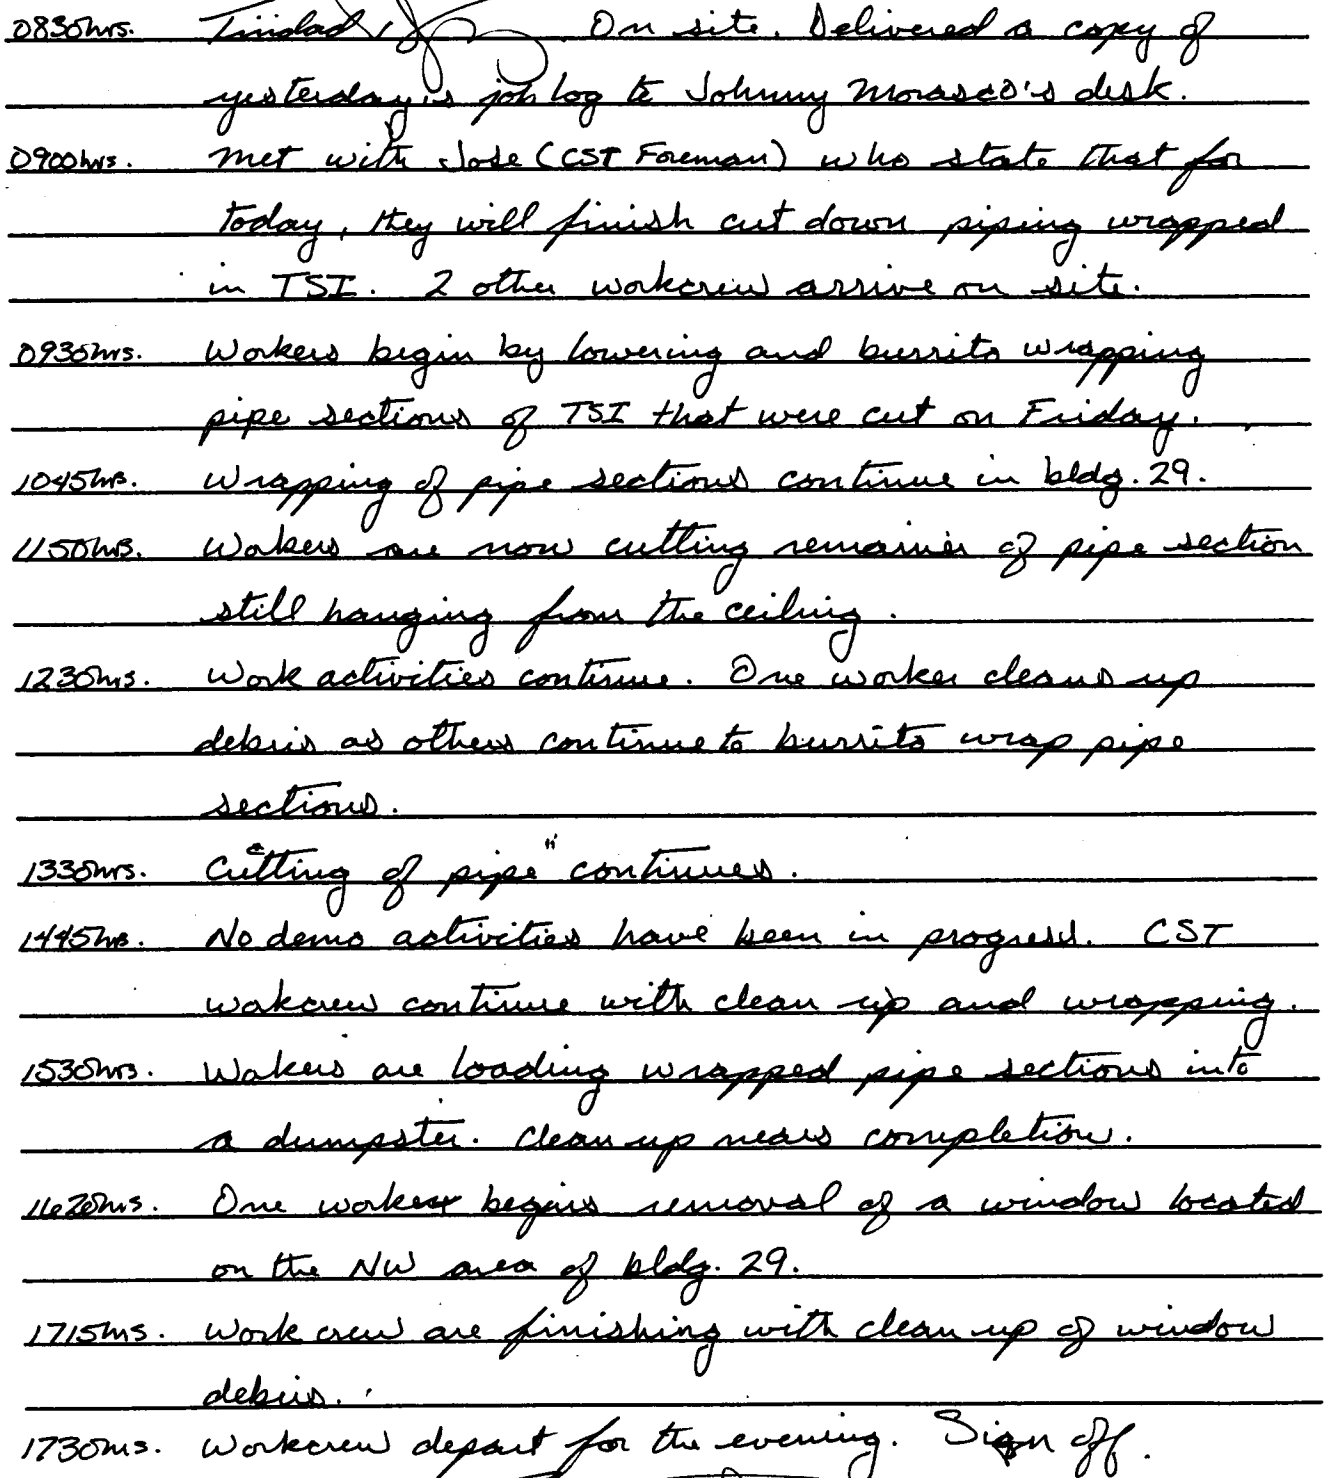 0830hrs. Trinidad On site. Delivered a copy of
yesterday's job log to Johnny Morasco's desk.
0900hrs. Met with Jose (CST Foreman) who state that for
today, they will finish cut down piping wrapped
in TSI. 2 other workcrew arrive on site.
0930hrs. Workers begin by lowering and burrito wrapping
pipe sections of TSI that were cut on Friday.
1045hrs. Wrapping of pipe sections continue in bldg. 29.
1150hrs. Workers are now cutting remainier of pipe section
still hanging from the ceiling.
1230hrs. Work activities continue. One worker cleans up
debris as others continue to burrito wrap pipe
sections.
1330hrs. Cutting of pipe" continues.
1445hrs. No demo activities have been in progress. CST
wokcrew continue with clean up and wrapping.
1530hrs. Wokers are loading wrapped pipe sections into
a dumpster. Clean up nears completion.
1620hrs. One worker begins removal of a window located
on the NW area of bldg. 29.
1715hrs. Work crew are finishing with clean up of window
debris.
1730hrs. Workcrew depart for the evening. Sign off.